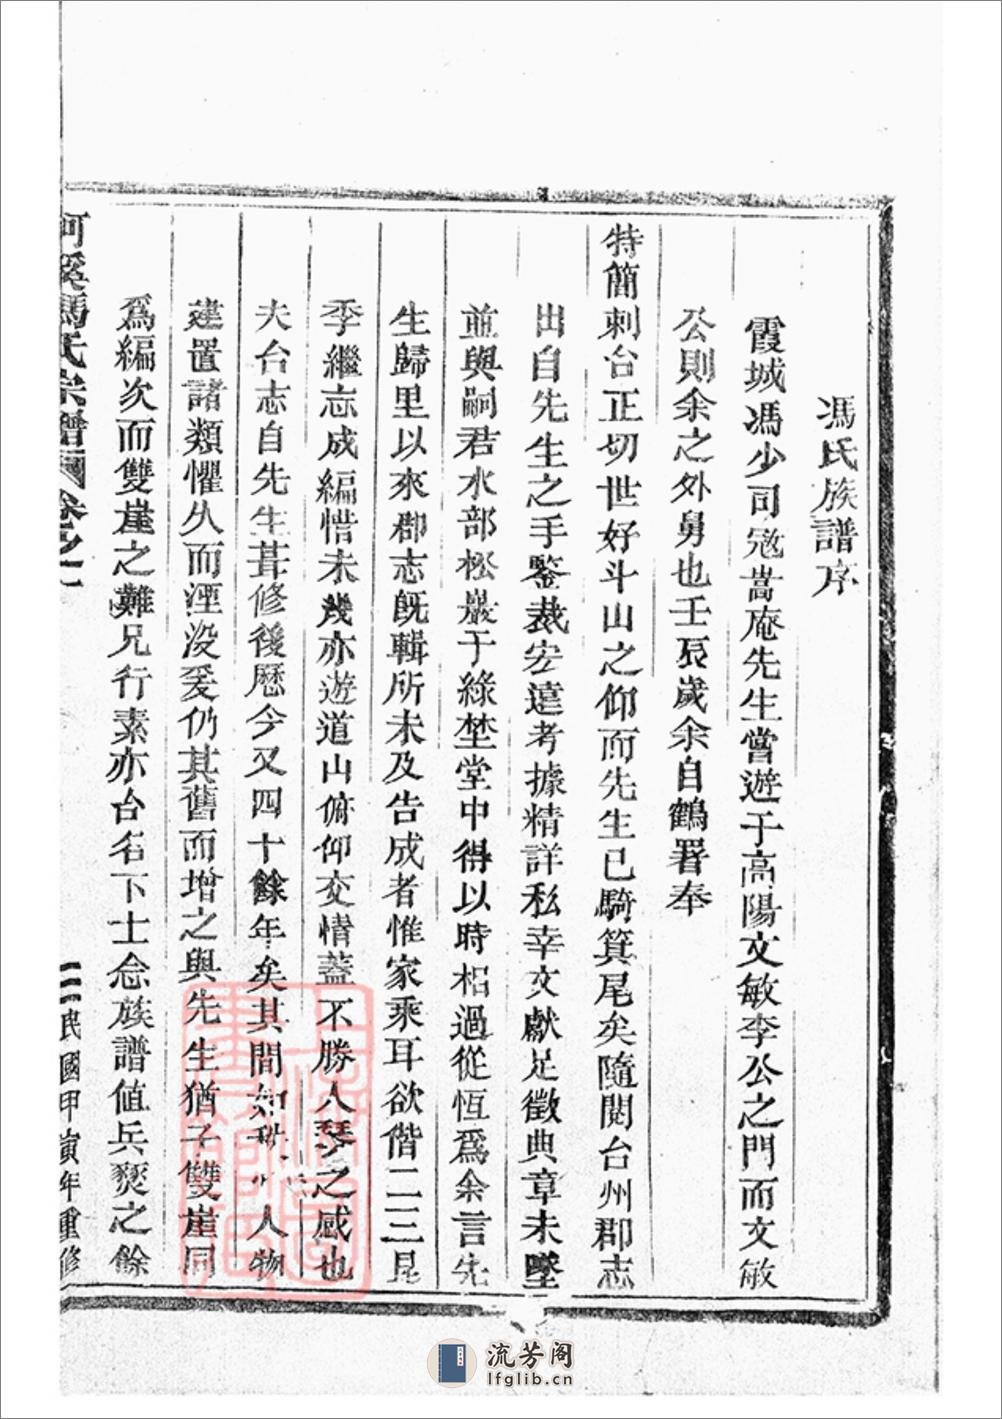 馮氏族譜序
霞城馮少司寇嵩庵先生嘗遊于高陽文敏李公之門而文敏
公則余之外舅也壬辰歲余自鶴署奉
特簡刺台正切世好斗山之仰而先生已騎箕尾矣隨閱台州郡志
出自先生之手鑒裁宏遠考據精詳私幸文獻足徵典章未墜
並與嗣君水部松巖于綠埜堂中得以時相過從恆爲余言先
生歸里以來郡志旣輯所未及告成者惟家乘耳欲偕二三昆
季繼志成編惜未幾亦遊道山俯仰交情蓋不勝人琴之感也
夫台志自先生葺修後歷今又四十餘年矣其間如 人物
建置諸類懼久而湮沒爰仍其舊而增之與先生猶子雙崖同
爲編次而雙崖之難兄行素亦台名下士念族譜值兵燹之餘
河溪馮氏宗譜 卷之一
二 民國甲寅年重修
流芳阁
lfglib.cn